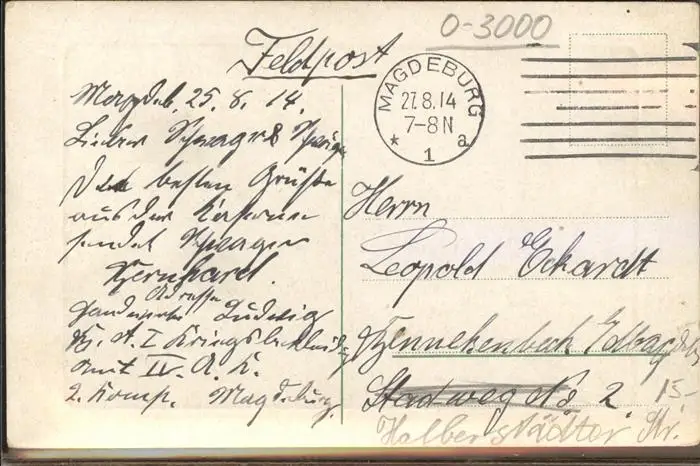 O-3000
Feldpost
MAGDEBURG
27.8.14
7-8N
* 1 a
Magdeb. 25. 8. 14.
Lieber Schwager &
Die besten Grüße
aus der Kaserne
sendet Schwager
Bernhard.
Adresse
Landwehrm. Ludwig
B. A. I Kriegsbekleidg
amt IV. A. K.
2. Komp. Magdeburg.
Herrn
Leopold Eckardt
Benneckenbeck
Stadtweg No 2.
15-
Halberstädter Str.